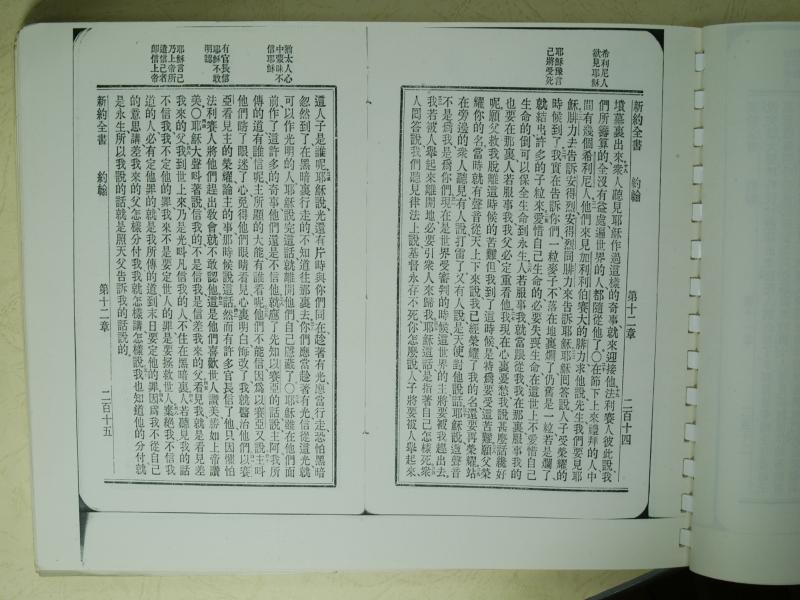 希利尼人
欲見耶穌
耶穌豫言
己將受死
新約全書 約翰 第十二章 二百十四
墳墓裏出來、衆人聽見耶穌作過這樣的奇事、就來迎接他法利賽人彼此說我
們所籌算的全沒有益處遍世界的人都隨從他了○在節下上來禮拜的人中
間有幾個希利尼人他們來見加利利伯賽大的腓力求他說先生我們要見耶
穌腓力去告訴安得烈安得烈同腓力來告訴耶穌耶穌回答說人子受榮耀的
時候到了我實在告訴你們一粒麥子不落在地裏爛了仍舊是一粒若是爛了
就結出許多的子粒來愛惜自己生命的必要失喪生命在這世上不愛惜自己
生命的倒可以保全生命到永生人若服事我就當跟從我我在那裏服事我的
也要在那裏人若服事我我父必定重看他我現在心裏憂愁我說甚麼話纔好
呢願父救我脫離這時候的苦難但我到了這時候是特爲要受這苦難願父榮
耀你的名當時就有聲音從天上下來說我已經榮耀了我的名還要再榮耀站
在旁邊的衆人聽見有人說打雷了又有人說是天使對他說話耶穌說這聲音
不是爲我是爲你們現在是世界受審判的時候這世界的主將要被我趕出去
我若被人舉起來離開地必要引衆人來歸我耶穌這話是指著自己怎樣死衆
人問答說我們聽見律法上說基督永存不死你怎麼說人子將要被人舉起來
猶太人心
中蒙昧不
信耶穌
有官長信
耶穌不敢
明認
耶穌言己
乃上帝所
遣信己者
卽信上帝
這人子是誰呢耶穌說光還有片時與你們同在趁著有光應當行走恐怕黑暗
忽然到了在黑暗裏行走的不知道往那裏去你們應當趁著有光信從這光就
可以作光明的人耶穌說完這話就離開他們自己隱藏了○耶穌雖在他們面
前作了這許多的奇事他們還是不信他就應了先知以賽亞的話說主阿我所
傳的道有誰信呢主所顯的大能有誰看呢他們不能信因爲以賽亞又說主叫
他們瞎了眼迷了心免得他們眼睛看見心裏明白悔改了我就醫治他們以賽
亞看見主的榮耀論主的事那時候說這話然而有許多官長信了他只因懼怕
法利賽人將他們趕出敎會就不敢認他這是他們喜歡世人讚美勝如上帝讚
美○耶穌大聲呌著說信我的不是信我是信差我來的父看見我就是看見差
我來的父我到世上來乃是光呌凡信我的人不住在黑暗裏人若聽見我的話
不信我我不定他的罪我來不是要定世人的罪是要拯救世人棄絕我不信我
道的人必有定他罪的就是我所傳的道到末日要定他的罪因爲我不從自己
的意思講差我來的父怎樣分付我我就怎樣講怎樣說我也知道他的分付就
是永生所以我說的話就是照天父告訴我的話說的
新約全書 約翰 第十二章 二百十五